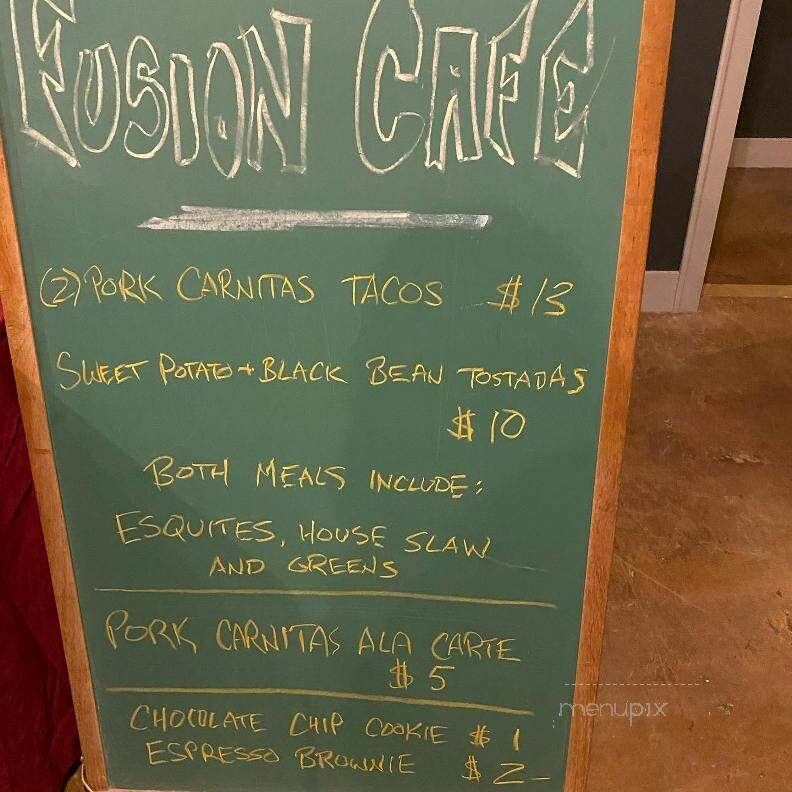 FUSION CAFE
(2) PORK CARNITAS TACOS $13
SWEET POTATO + BLACK BEAN TOSTADAS
$10
BOTH MEALS INCLUDE:
ESQUITES, HOUSE SLAW
AND GREENS
PORK CARNITAS ALA CARTE
$5
CHOCOLATE CHIP COOKIE $1
ESPRESSO BROWNIE $2-
menupix